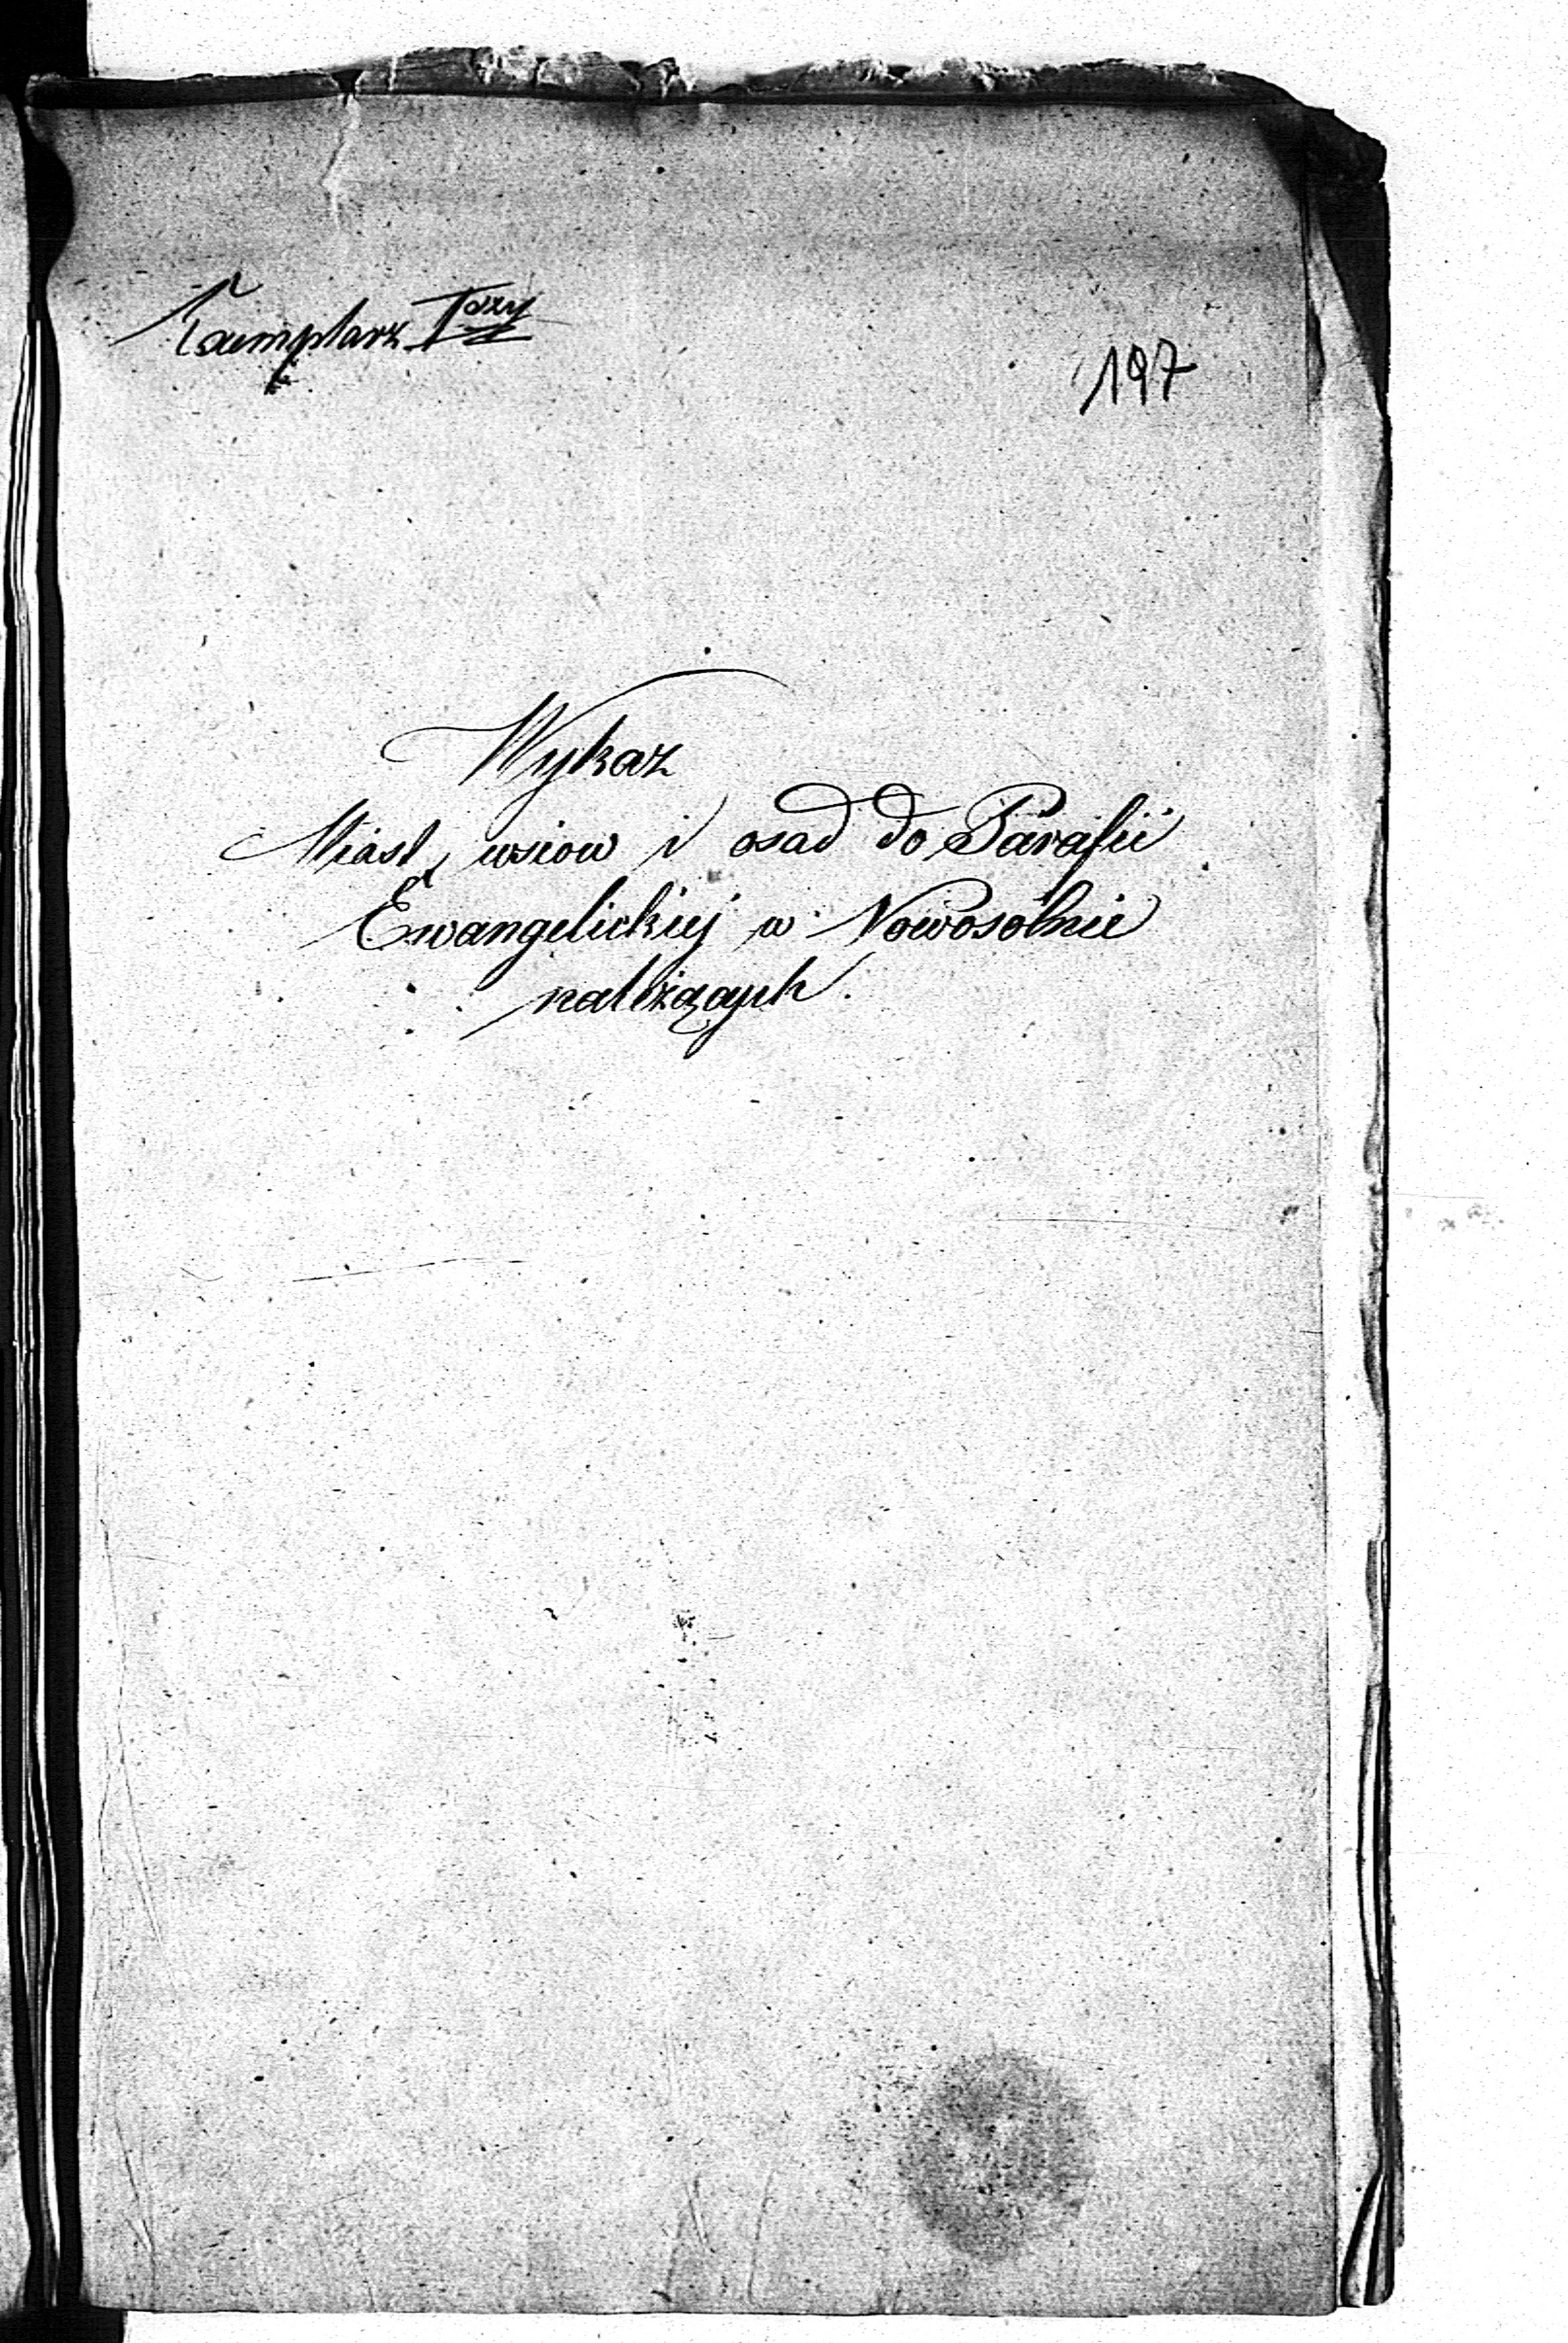 Exemplarz Iszy
197
Wykaz
Miast, wsiow i osad do Parafii
Ewangelickiej w Nowosolnie
należących.